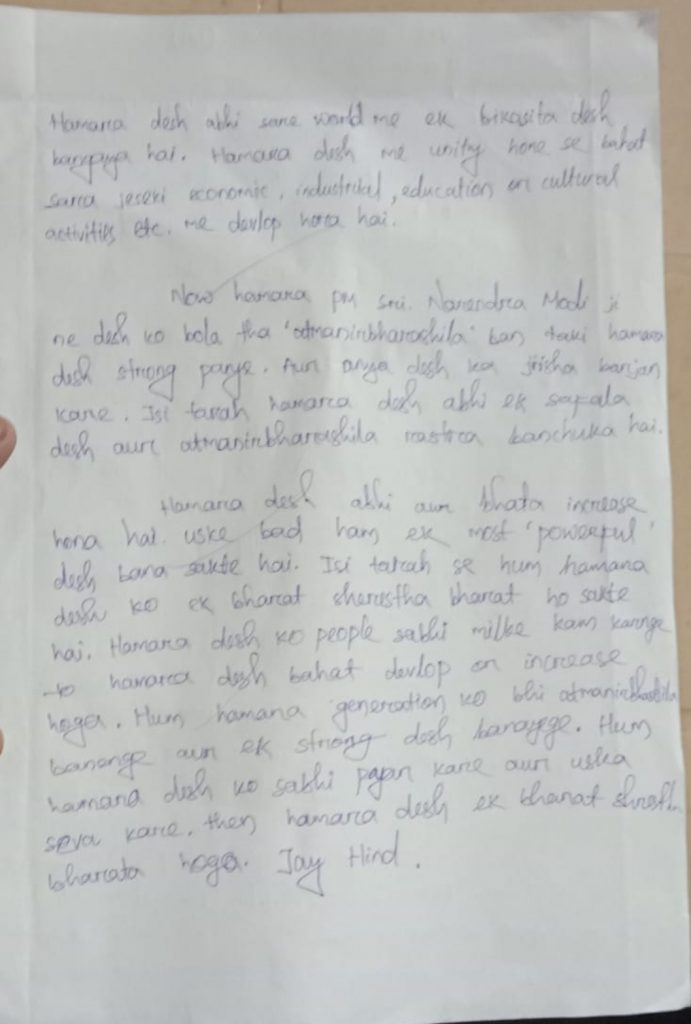 Hamara desh abhi sare world me ek bikasita desh
banpaya hai. Hamara desh me unity hone se bahat
sara jeseki economic, industrical, education or cultural
activities etc. me devlop hora hai.
Now hamara pm sri. Narendra Modi ji
ne desh ko bola tha 'atmanirbharashila' ban taki hamara
desh strong panye. Aur anya desh ka jaisha banjan
kare. Isi tarah hamara desh abhi ek safala
desh aur atmanirbharashila rastra banchuka hai.
Hamara desh abhi aur bhata increase
hona hai. uske bad ham ek most 'powerful'
desh bana sakte hai. Isi tarah se hum hamara
desh ko ek bharat sherastha bharat ho sakte
hai. Hamara desh ko people sabhi milke kam karnge
to hamara desh bahat devlop or increase
hoga. Hum hamara generation ko bhi atmanirbhashila
banenge aur ek strong desh banayege. Hum
hamara desh ko sabhi pajan kare aur uska
seva kare. then hamara desh ek bharat shresth
bharata hoga. Jay Hind.